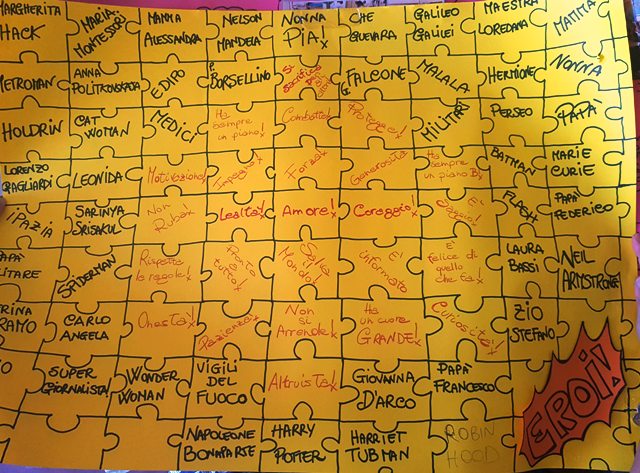 MARGHERITA HACK
MARIA MONTESSORI
MAMMA ALESSANDRA
NELSON MANDELA
NONNA PIA
CHE GUEVARA
GALILEO GALILEI
MAESTRA LOREDANA
MAMMA
METRONAN
ANNA POLITKOVSKAJA
EDIPO
P. BORSELLINO
Si sacrifica
G. FALCONE
MALALA
HERMIONE
NONNA
HOLDRIN
CAT WOMAN
MEDICI
Ha sempre un piano!
Combatte!
Protegge!
MILITARI
PERSEO
PAPA'
LORENZO GAGLIARDI
LEONIDA
Motivazione!
Impegno!
Forza!
Generosità
Ha sempre un piano B!
BATMAN
MARIE CURIE
IPAZIA
SARINYA SRISAKUL
Non Ruba!
Lealtà!
Amore!
Coraggio!
E' Saggio!
FLASH
PAPA' FEDERICO
SPIDERMAN
Rispetta le regole!
Pronto a tutto!
Salva il Mondo!
E' informato
E' felice di quello che fa!
LAURA BASSI
NEIL ARMSTRONG
CARLO ANGELA
Onestà!
Pazienza!
Non si Arrende!
Ha un cuore GRANDE!
Curiosità!
ZIO STEFANO
SUPER GIORNALISTA!
WONDER WOMAN
VIGILI DEL FUOCO
Altruista!
GIOVANNA D'ARCO
PAPA FRANCESCO
EROI!
NAPOLEONE BONAPARTE
HARRY POTTER
HARRIET TUBMAN
ROBIN HOOD